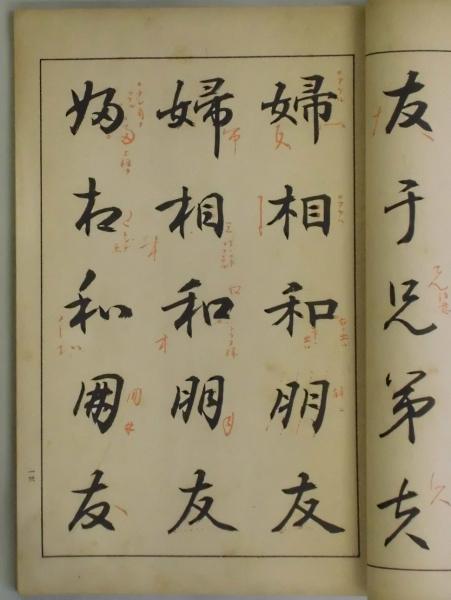 友于兄弟夫
婦相和朋友
婦相和朋友
婦相和朋友